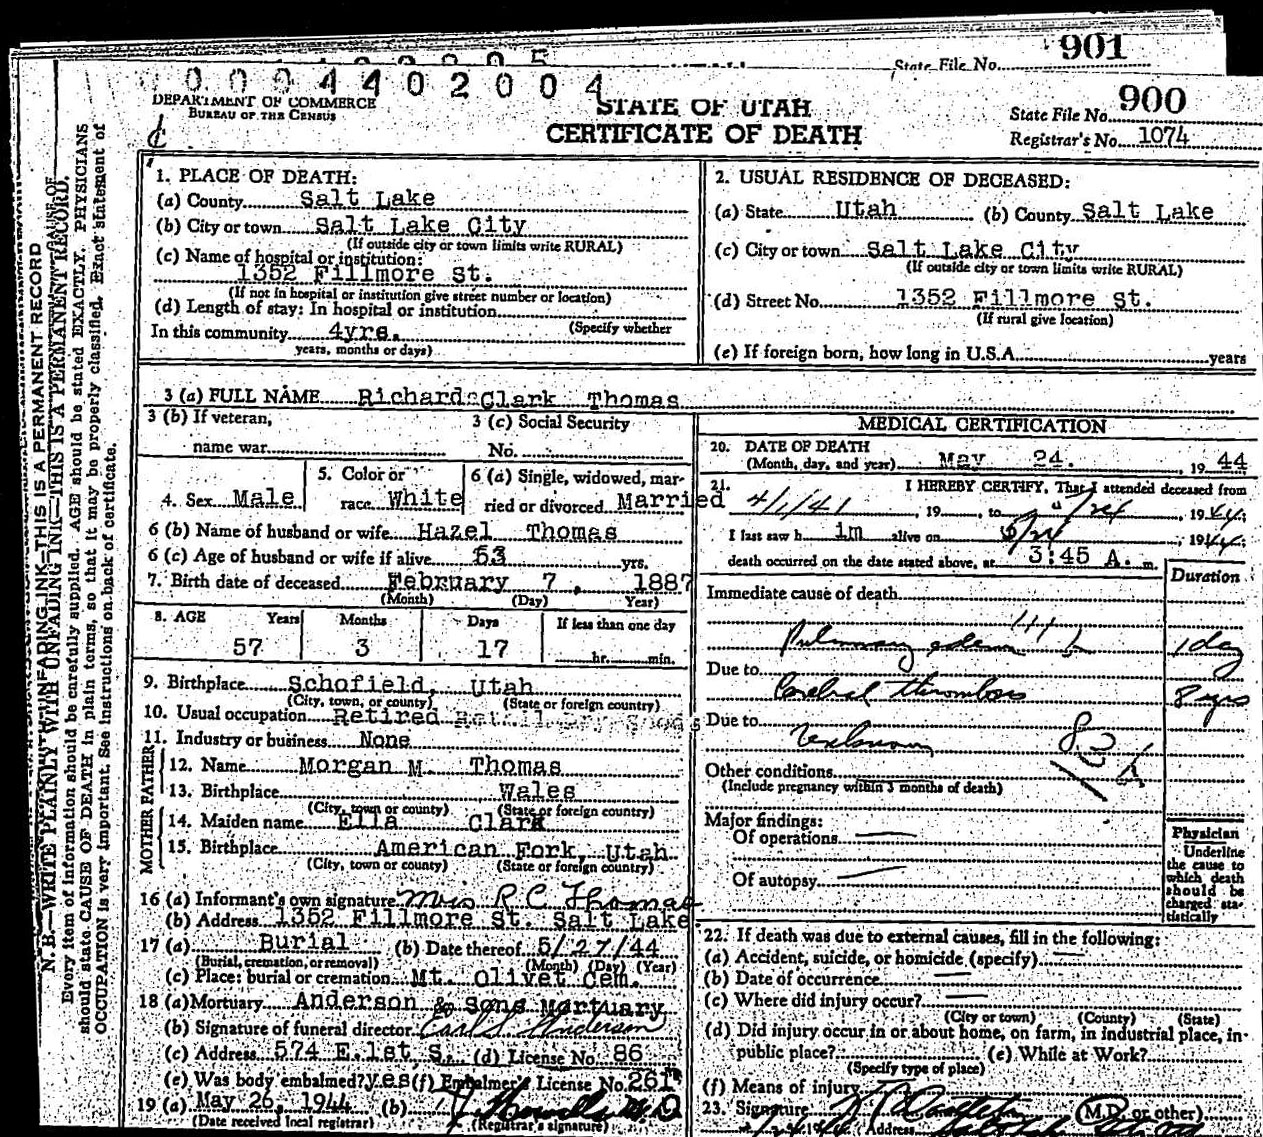 901
State File No.
0004402004
DEPARTMENT OF COMMERCE
BUREAU OF THE CENSUS
STATE OF UTAH
CERTIFICATE OF DEATH
State File No. 900
Registrar's No. 1074
N. B.—WRITE PLAINLY WITH UNFADING INK—THIS IS A PERMANENT RECORD.
Every item of information should be carefully supplied. AGE should be stated EXACTLY. PHYSICIANS
should state CAUSE OF DEATH in plain terms, so that it may be properly classified. Exact statement of
OCCUPATION is very important. See instructions on back of certificate.
1. PLACE OF DEATH:
(a) County Salt Lake
(b) City or town Salt Lake City
(If outside city or town limits write RURAL)
(c) Name of hospital or institution:
1352 Fillmore St.
(If not in hospital or institution give street number or location)
(d) Length of stay: In hospital or institution
(Specify whether
In this community 4yrs.
years, months or days)
2. USUAL RESIDENCE OF DECEASED:
(a) State Utah (b) County Salt Lake
(c) City or town Salt Lake City
(If outside city or town limits write RURAL)
(d) Street No. 1352 Fillmore St.
(If rural give location)
(e) If foreign born, how long in U.S.A. years
3 (a) FULL NAME Richard Clark Thomas
3 (b) If veteran, 3 (c) Social Security
name war No.
4. Sex Male 5. Color or race White 6 (a) Single, widowed, married or divorced Married
6 (b) Name of husband or wife Hazel Thomas
6 (c) Age of husband or wife if alive 53 yrs.
7. Birth date of deceased February 7, 1887
(Month) (Day) Year)
8. AGE Years Months Days If less than one day
57 3 17 hr. min.
9. Birthplace Schofield, Utah
(City, town, or county) (State or foreign country)
10. Usual occupation Retired Retail Dry Goods
11. Industry or business None
FATHER
12. Name Morgan M. Thomas
13. Birthplace Wales
(City, town or county) (State or foreign country)
MOTHER
14. Maiden name Ella Clark
15. Birthplace American Fork, Utah
(City, town or county) (State or foreign country)
16 (a) Informant's own signature Mrs R C Thomas
(b) Address 1352 Fillmore St. Salt Lake
17 (a) Burial (b) Date thereof 5/27/44
(Burial, cremation, or removal) (Month) (Day) (Year)
(c) Place: burial or cremation Mt. Olivet Cem.
18 (a) Mortuary Anderson & Sons Mortuary
(b) Signature of funeral director Carl S Anderson
(c) Address 574 E.1st S. (d) License No. 86
(e) Was body embalmed? yes (f) Embalmer's License No. 261
19 (a) May 26, 1944 (b) M D
(Date received local registrar) (Registrar's signature)
MEDICAL CERTIFICATION
20. DATE OF DEATH
(Month, day, and year) May 24, 1944
21. I HEREBY CERTIFY, That I attended deceased from
4/1/41, 19 , to /24, 1944;
I last saw h im alive on 5/24, 1944;
death occurred on the date stated above, at 3:45 A. m.
Duration
Immediate cause of death
Pulmonary edema 1 day
Due to
Cerebral thrombosis 8 yrs
Due to
Unknown
Other conditions
(Include pregnancy within 3 months of death)
Major findings:
Of operations
Of autopsy
Physician
Underline
the cause to
which death
should be
charged sta-
tistically
22. If death was due to external causes, fill in the following:
(a) Accident, suicide, or homicide (specify)
(b) Date of occurrence
(c) Where did injury occur?
(City or town) (County) (State)
(d) Did injury occur in or about home, on farm, in industrial place, in-
public place? (e) While at Work?
(Specify type of place)
(f) Means of injury
23. Signature (M.D. or other)
Address